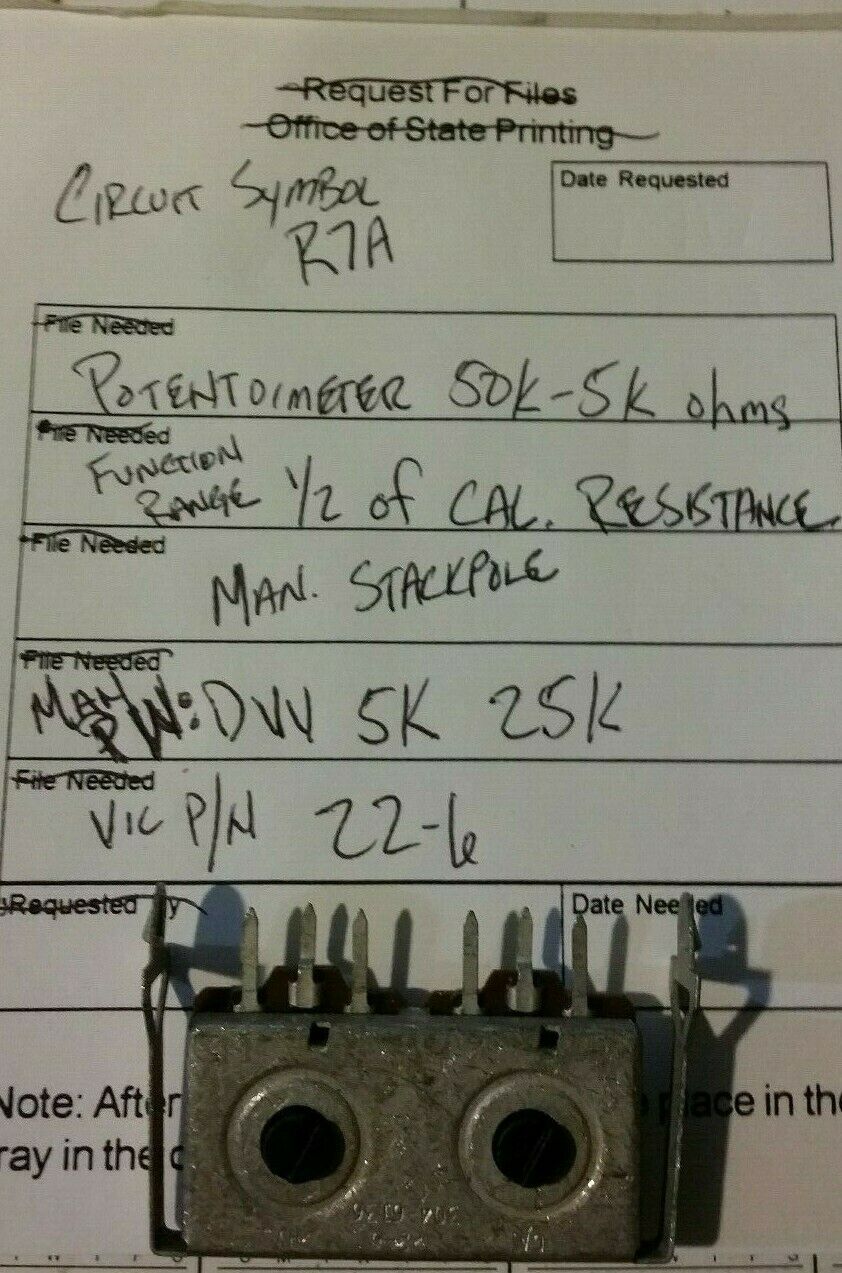 Request For Files
Office of State Printing
CIRCUIT SYMBOL
R7A
Date Requested
File Needed
POTENTOIMETER 50K-5K ohms
File Needed
FUNCTION
RANGE 1/2 of CAL. RESISTANCE
File Needed
MAN. STACKPOLE
File Needed
MAN
P/N: DVV 5K 25K
File Needed
VIC P/N 22-6
Requested By
Date Needed
Note: After place in the
ray in the